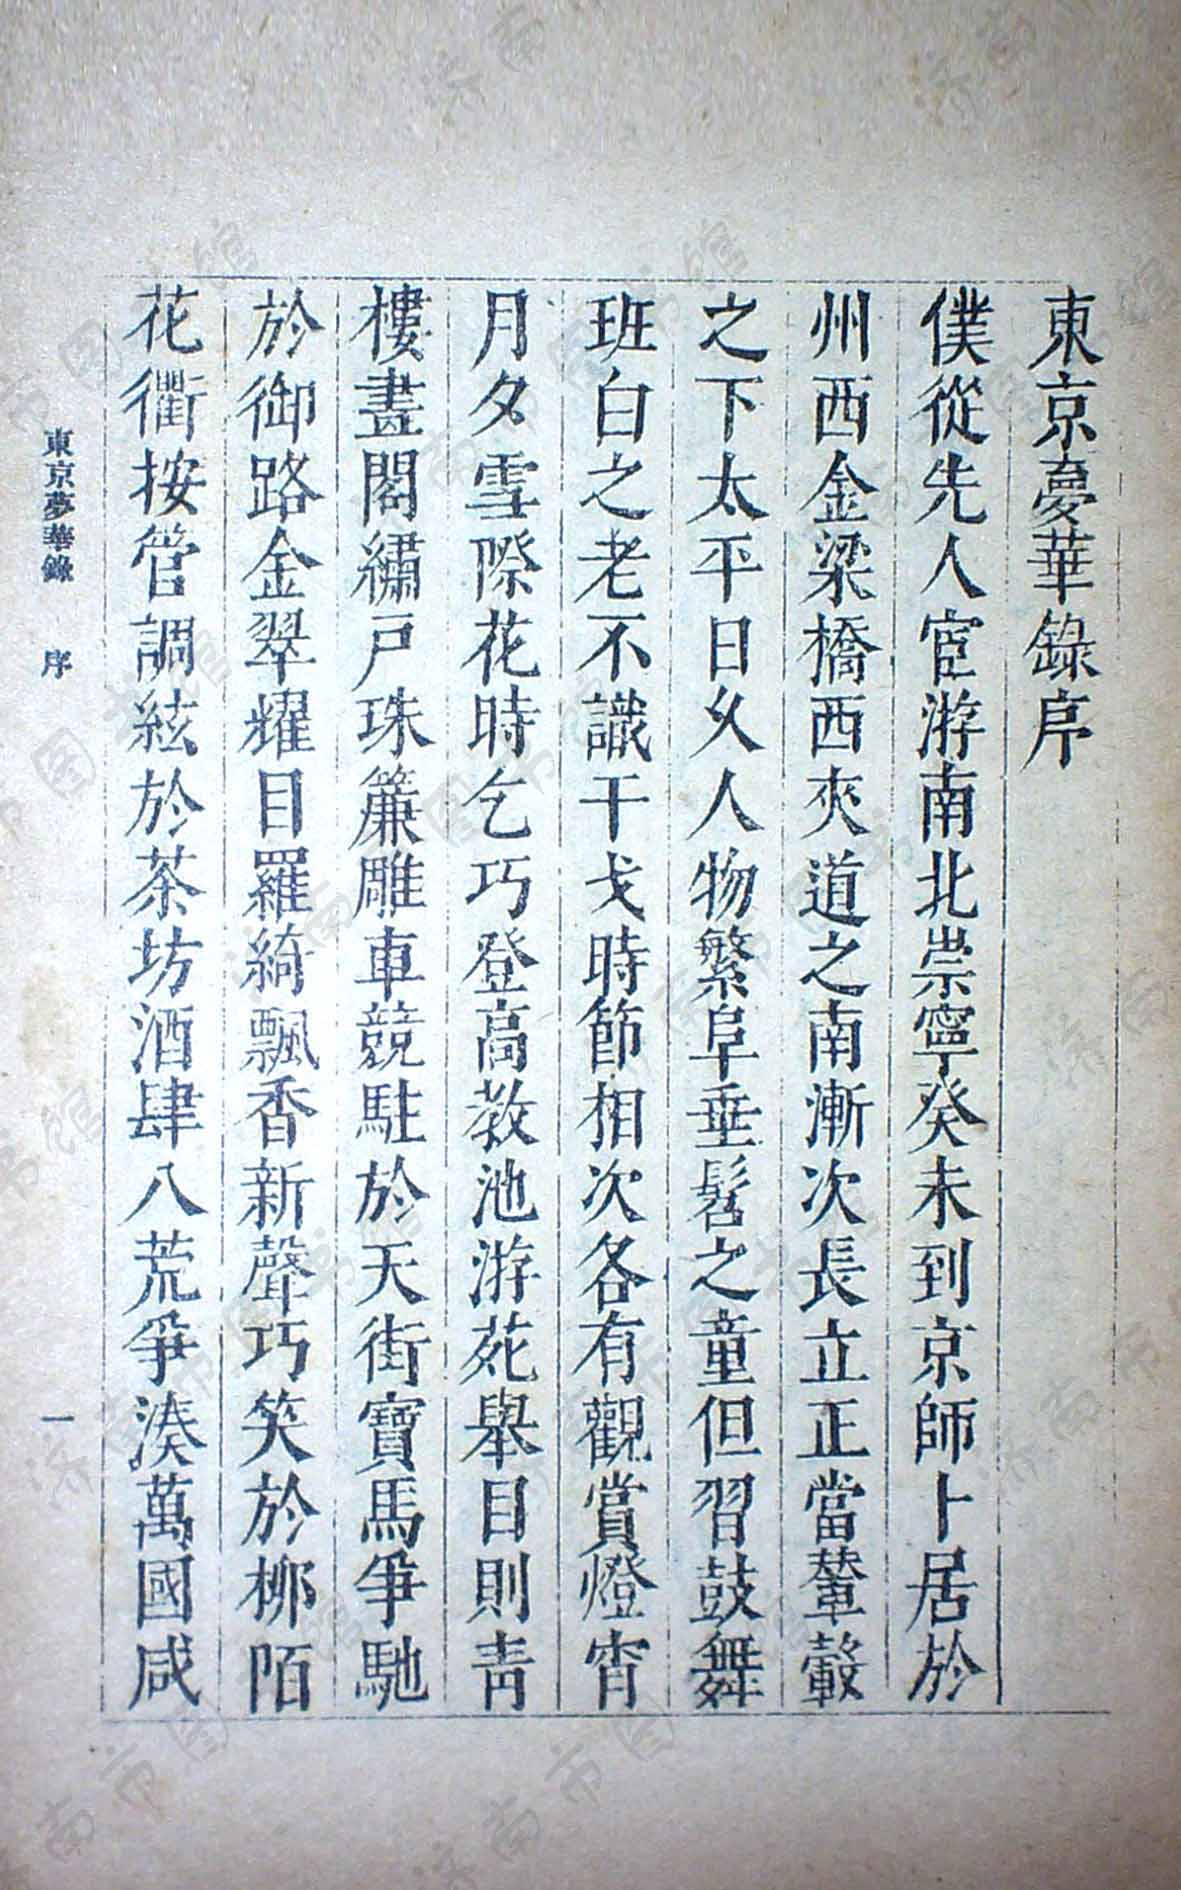 東京夢華錄序
僕從先人宦游南北崇寧癸未到京師卜居於
州西金梁橋西夾道之南漸次長立正當輦轂
之下太平日久人物繁阜垂髫之童但習鼓舞
班白之老不識干戈時節相次各有觀賞燈宵
月夕雪際花時乞巧登高教池游苑舉目則青
樓畫閣繡戶珠簾雕車競駐於天街寶馬爭馳
於御路金翠耀目羅綺飄香新聲巧笑於柳陌
花衢按管調絃於茶坊酒肆八荒爭湊萬國咸
東京夢華錄 序 一
济南市图书馆